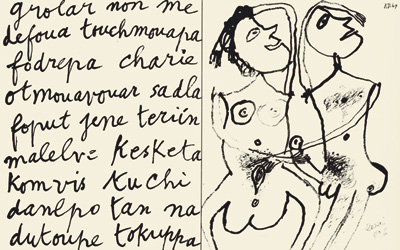 grolar non me
defoua touchmouapa
fodrepa charie
otmouavouar sadla
foput jene teriín
malelve kesketa
komvis kuchi
danlpo tan na
dutoupe tokuppa